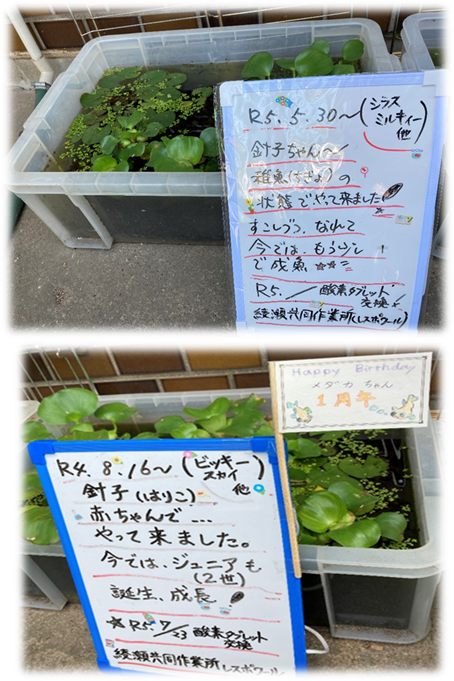 R5.5.30〜(シラス
ミルキィー
他)
針子ちゃん〜
稚魚(ちぎょ)の
状態でやって来ました!
すこしづつ、なれて
今では、もう少し
で成魚☆☆
R5. / 酸素タブレット
交換
綾瀬共同作業所(レスポワール)
Happy Birthday
メダカちゃん
1周年
R4.8.16〜(ビッキー
スカイ
他)
針子(はりこ)
赤ちゃんで…
やって来ました。
今では、ジュニアも
(2世)
誕生、成長!
☆R5.7/23 酸素タブレット
交換
綾瀬共同作業所レスポワール